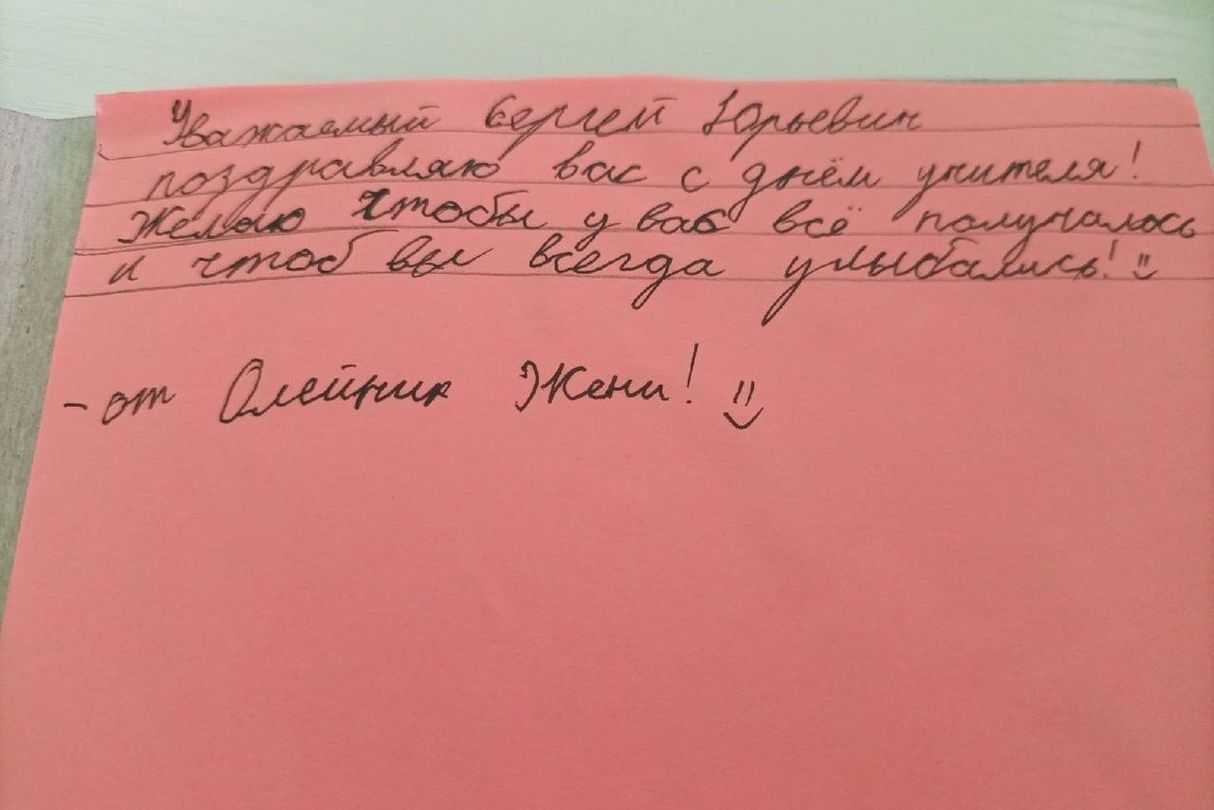 Уважаемый Сергей Юрьевич
поздравляю вас с днём учителя!
Желаю чтобы у вас всё получалось
и чтоб вы всегда улыбались! :)
- от Олейник Жени! :)